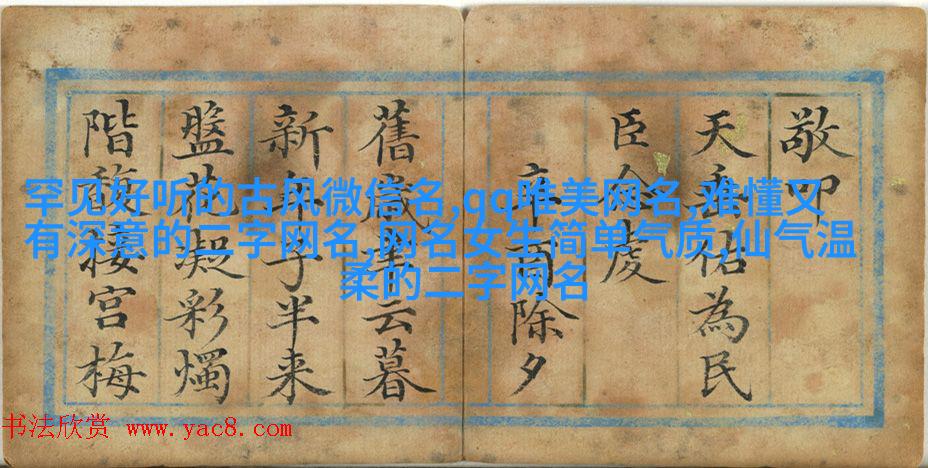 罕见好听的古风微信名,qq唯美网名,难懂又
有深意的二字网名,网名女生简单气质,仙气温
柔的二字网名
敬叩
天祐為民
臣虔
辛酉除夕
舊歲聿云暮
新年子半来
盤花凝彩燭
階馥宮梅
书法欣赏 www.yac8.com